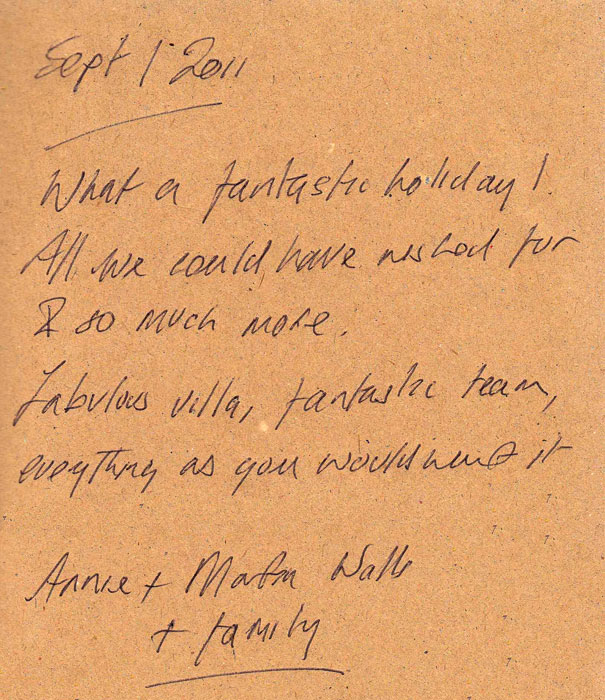 Sept 1 2011
What a fantastic holiday!
All we could have wished for
& so much more.
Fabulous villa, fantastic team,
everything as you would want it
Annie + Martin
+ family